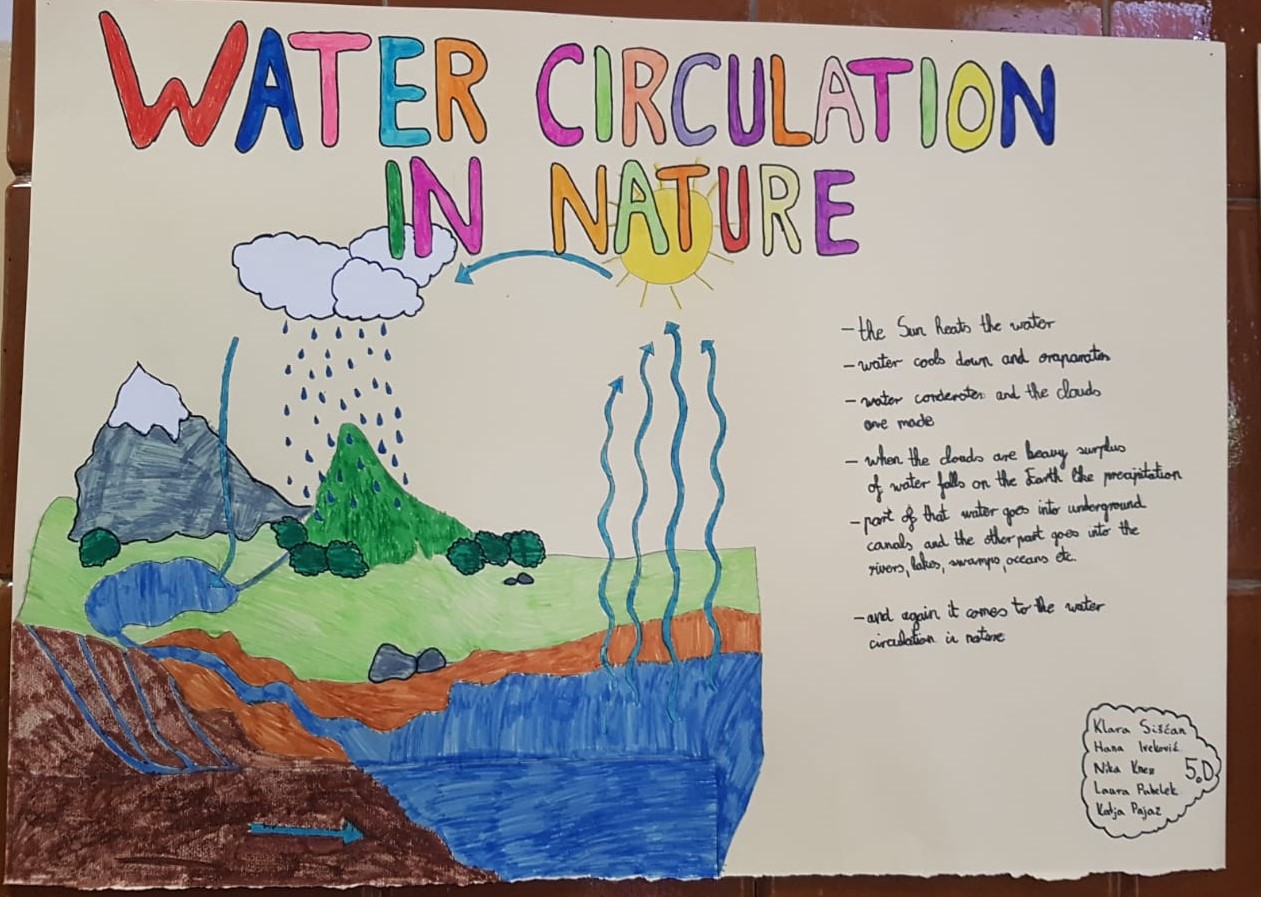 WATER CIRCULATION
IN NATURE
- the Sun heats the water
- water cools down and evaparates
- water condenstes and the clouds
are made
- when the clouds are heavy surplus
of water falls on the Earth like precipitation
- part of that water goes into underground
canals and the other part goes into the
rivers, lakes, swamps, oceans etc.
- and again it comes to the water
circulation in nature
Klara Siščan
Hana Iveković
Nika Knez
5.D
Laura Pukelek
Katja Pajaz